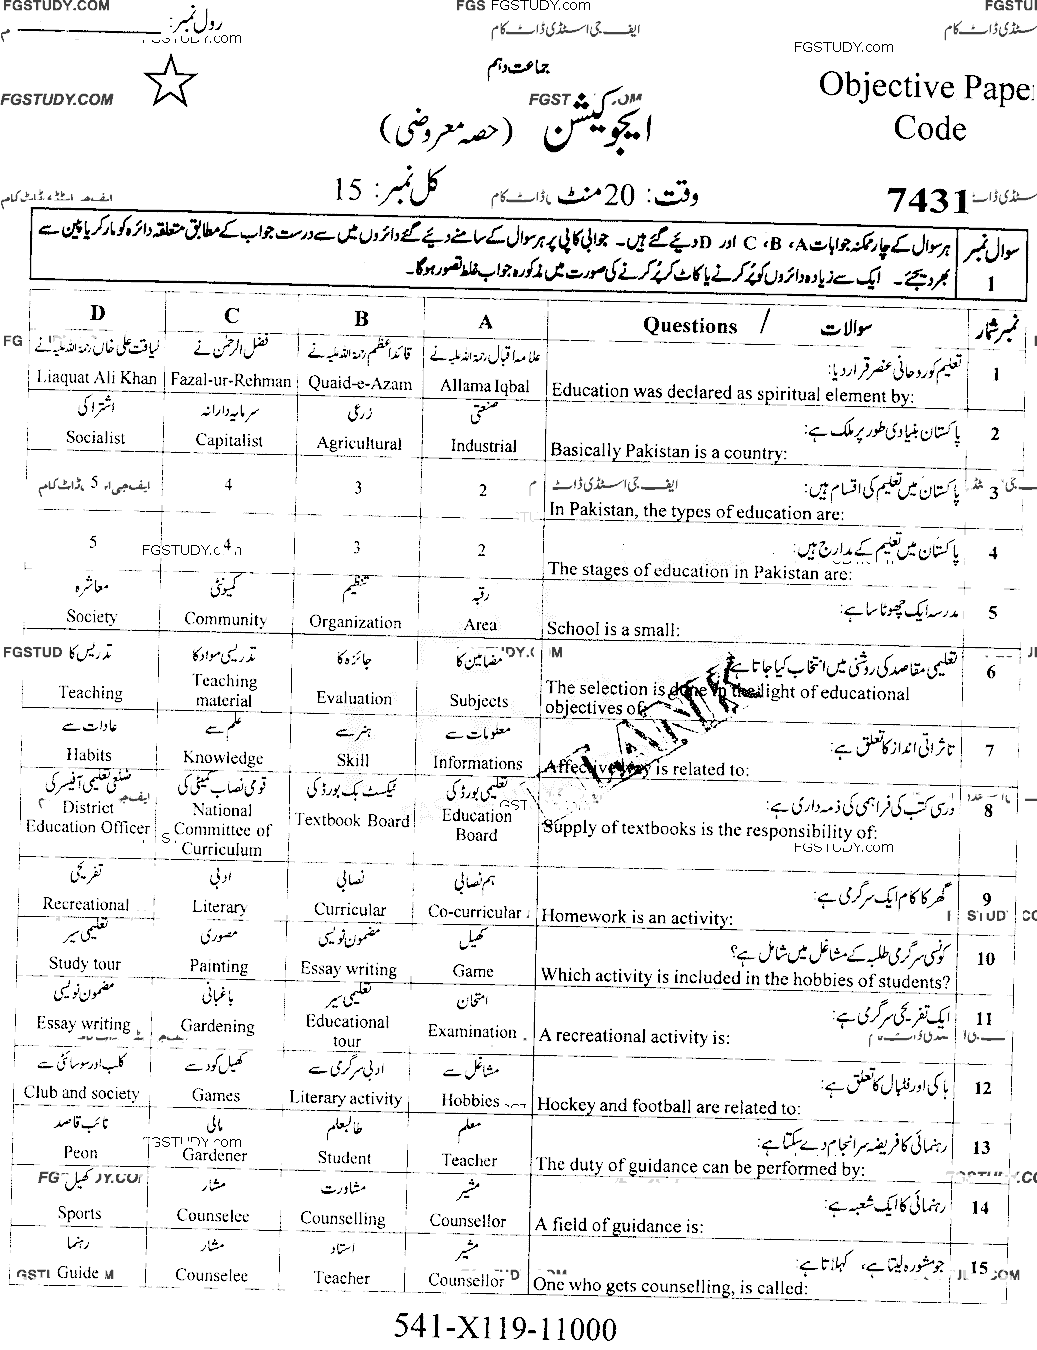 FGSTUDY.COM FGS FGSTUDY.COM FGSTU
رول نمبر: ایف جی اسٹڈی ڈاٹ کام
FGSTUDY.com FGSTUDY.com
جماعت دہم
FGSTUDY.COM Objective Paper
ایجوکیشن (حصہ معروضی) Code
وقت: 20 منٹ کل نمبر: 15 7431
سوال نمبر 1 ہر سوال کے چار ممکنہ جوابات A، B، C اور D دیئے گئے ہیں۔ جوابی کاپی پر ہر سوال کے سامنے دیئے گئے دائروں میں سے درست جواب کے مطابق متعلقہ دائرہ کو مارکر یا پین سے
بھر دیجئے۔ ایک سے زیادہ دائروں کو پُر کرنے یا کاٹ کر پُر کرنے کی صورت میں مذکورہ جواب غلط تصور ہوگا۔
D C B A Questions / سوالات نمبر شمار
لیاقت علی خاں رحمۃ اللہ علیہ نے فضل الرحمٰن نے قائد اعظم رحمۃ اللہ علیہ نے علامہ اقبال رحمۃ اللہ علیہ نے تعلیم کو روحانی عنصر قرار دیا: 1
Liaquat Ali Khan Fazal-ur-Rehman Quaid-e-Azam Allama Iqbal Education was declared as spiritual element by:
اشتراکی سرمایہ دارانہ زرعی صنعتی پاکستان بنیادی طور پر ملک ہے: 2
Socialist Capitalist Agricultural Industrial Basically Pakistan is a country:
5 4 3 2 پاکستان میں تعلیم کی اقسام ہیں: 3
In Pakistan, the types of education are:
5 4 3 2 پاکستان میں تعلیم کے مدارج ہیں: 4
FGSTUDY.c The stages of education in Pakistan are:
معاشرہ کمیونٹی تنظیم رقبہ مدرسہ ایک چھوٹا سا ہے: 5
Society Community Organization Area School is a small:
تدریس کا تدریسی مواد کا جائزہ کا مضامین کا تعلیمی مقاصد کی روشنی میں انتخاب کیا جاتا ہے 6
Teaching Teaching material Evaluation Subjects The selection is done in the light of educational
objectives of:
عادات سے علم سے ہنر سے معلومات سے تاثراتی انداز کا تعلق ہے: 7
Habits Knowledge Skill Informations Affective way is related to:
ضلعی تعلیمی آفیسر کی قومی نصاب کمیٹی کی ٹیکسٹ بک بورڈ کی تعلیمی بورڈ کی درسی کتب کی فراہمی کی ذمہ داری ہے: 8
District Education Officer National Committee of Curriculum Textbook Board Education Board Supply of textbooks is the responsibility of:
FGSTUDY.com
تفریحی ادبی نصابی ہم نصابی گھر کا کام ایک سرگرمی ہے: 9
Recreational Literary Curricular Co-curricular Homework is an activity:
تعلیمی سیر مصوری مضمون نویسی کھیل کونسی سرگرمی طلبہ کے مشاغل میں شامل ہے؟ 10
Study tour Painting Essay writing Game Which activity is included in the hobbies of students?
مضمون نویسی باغبانی تعلیمی سیر امتحان ایک تفریحی سرگرمی ہے: 11
Essay writing Gardening Educational tour Examination A recreational activity is:
کلب اور سوسائٹی سے کھیل کود سے ادبی سرگرمی سے مشاغل سے ہاکی اور فٹبال کا تعلق ہے: 12
Club and society Games Literary activity Hobbies Hockey and football are related to:
نائب قاصد مالی طالبعلم معلم رہنمائی کا فریضہ سرانجام دے سکتا ہے: 13
Peon Gardener Student Teacher The duty of guidance can be performed by:
کھیل مشار مشاورت مشیر رہنمائی کا ایک شعبہ ہے: 14
Sports Counselee Counselling Counsellor A field of guidance is:
رہنما مشار استاد مشیر جو مشورہ لیتا ہے، کہلاتا ہے: 15
Guide Counselee Teacher Counsellor One who gets counselling, is called:
541-X119-11000